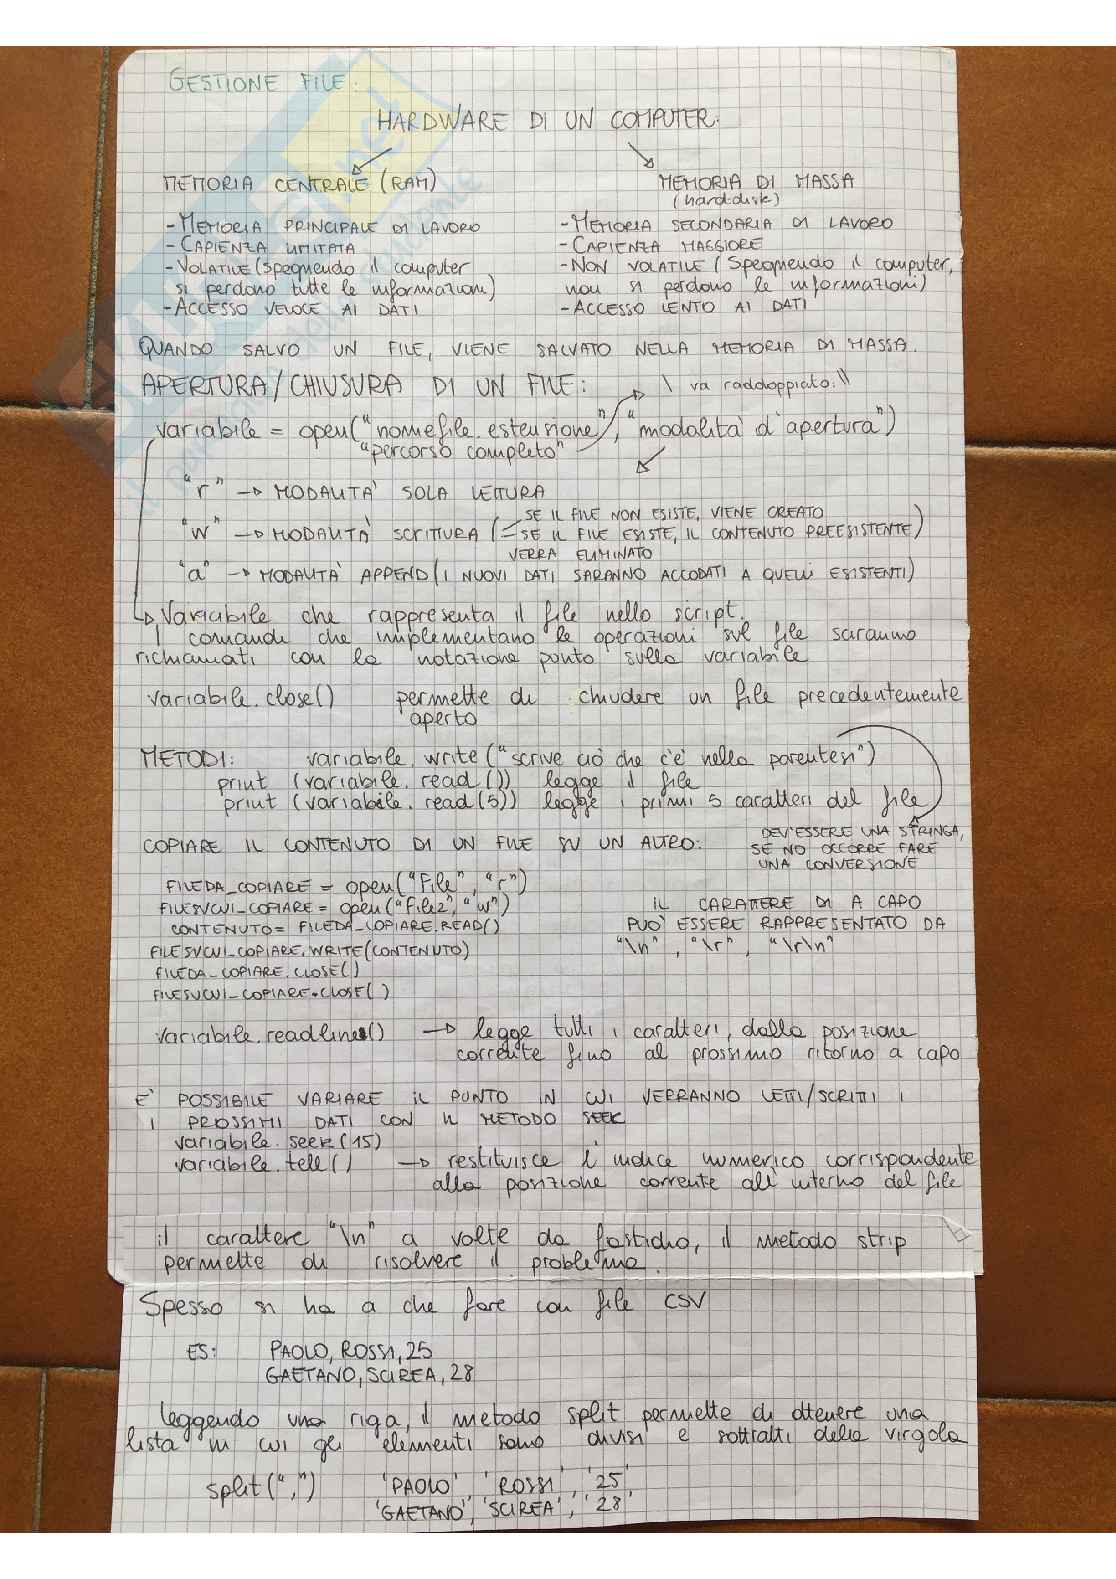 GESTIONE FILE:
HARDWARE DI UN COMPUTER:
MEMORIA CENTRALE (RAM)
- MEMORIA PRINCIPALE DI LAVORO
- CAPIENZA LIMITATA
- VOLATILE (Spegnendo il computer
si perdono tutte le informazioni)
- ACCESSO VELOCE AI DATI
MEMORIA DI MASSA
(hard-disk)
- MEMORIA SECONDARIA DI LAVORO
- CAPIENZA MAGGIORE
- NON VOLATILE (Spegnendo il computer,
non si perdono le informazioni)
- ACCESSO LENTO AI DATI
QUANDO SALVO UN FILE, VIENE SALVATO NELLA MEMORIA DI MASSA.
APERTURA/CHIUSURA DI UN FILE:
\ va raddoppiato: \\
variabile = open("nomefile.estensione", "modalità d'apertura")
"percorso completo"
"r" → MODALITÀ SOLA LETTURA
"W" → MODALITÀ SCRITURA (- SE IL FILE NON ESISTE, VIENE CREATO
- SE IL FILE ESISTE, IL CONTENUTO PREESISTENTE)
VERRÀ ELIMINATO
"a" → MODALITÀ APPEND (I NUOVI DATI SARANNO ACCODATI A QUELLI ESISTENTI)
→ Variabile che rappresenta il file nello script.
I comandi che implementano le operazioni sul file saranno
richiamati con la notazione punto sulla variabile
variabile.close() permette di chiudere un file precedentemente
aperto
METODI: variabile.write("scrive ciò che c'è nella parentesi")
print (variabile.read()) legge il file
print (variabile.read(5)) legge i primi 5 caratteri del file
DEV'ESSERE UNA STRINGA,
SE NO OCCORRE FARE
UNA CONVERSIONE
COPIARE IL CONTENUTO DI UN FILE SU UN ALTRO:
FILEDA_COPIARE = open("File", "r")
FILESUCUI_COPIARE = open("File2", "w")
CONTENUTO = FILEDA_COPIARE.READ()
FILESUCUI_COPIARE.WRITE(CONTENUTO)
FILEDA_COPIARE.CLOSE()
FILESUCUI_COPIARE.CLOSE()
IL CARATTERE DI A CAPO
PUÒ ESSERE RAPPRESENTATO DA
"\n", "\r", "\r\n"
variabile.readlines() → legge tutti i caratteri, dalla posizione
corrente fino al prossimo ritorno a capo
È POSSIBILE VARIARE IL PUNTO IN CUI VERRANNO LETTI/SCRITTI I
I PROSSIMI DATI CON IL METODO SEEK
variabile.seek(15)
variabile.tell() → restituisce l'indice numerico corrispondente
alla posizione corrente all'interno del file
il carattere "\n" a volte da fastidio, il metodo strip
permette di risolvere il problema.
Spesso si ha a che fare con file CSV
ES: PAOLO, ROSSI, 25
GAETANO, SCIREA, 28
leggendo una riga, il metodo split permette di ottenere una
lista in cui gli elementi sono divisi e sottratti della virgola
split(",") 'PAOLO', 'ROSSI', '25',
'GAETANO', 'SCIREA', '28'